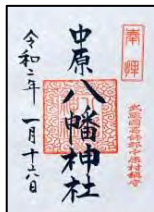 奉拝
中原八幡神社
令和二年 一月十六日